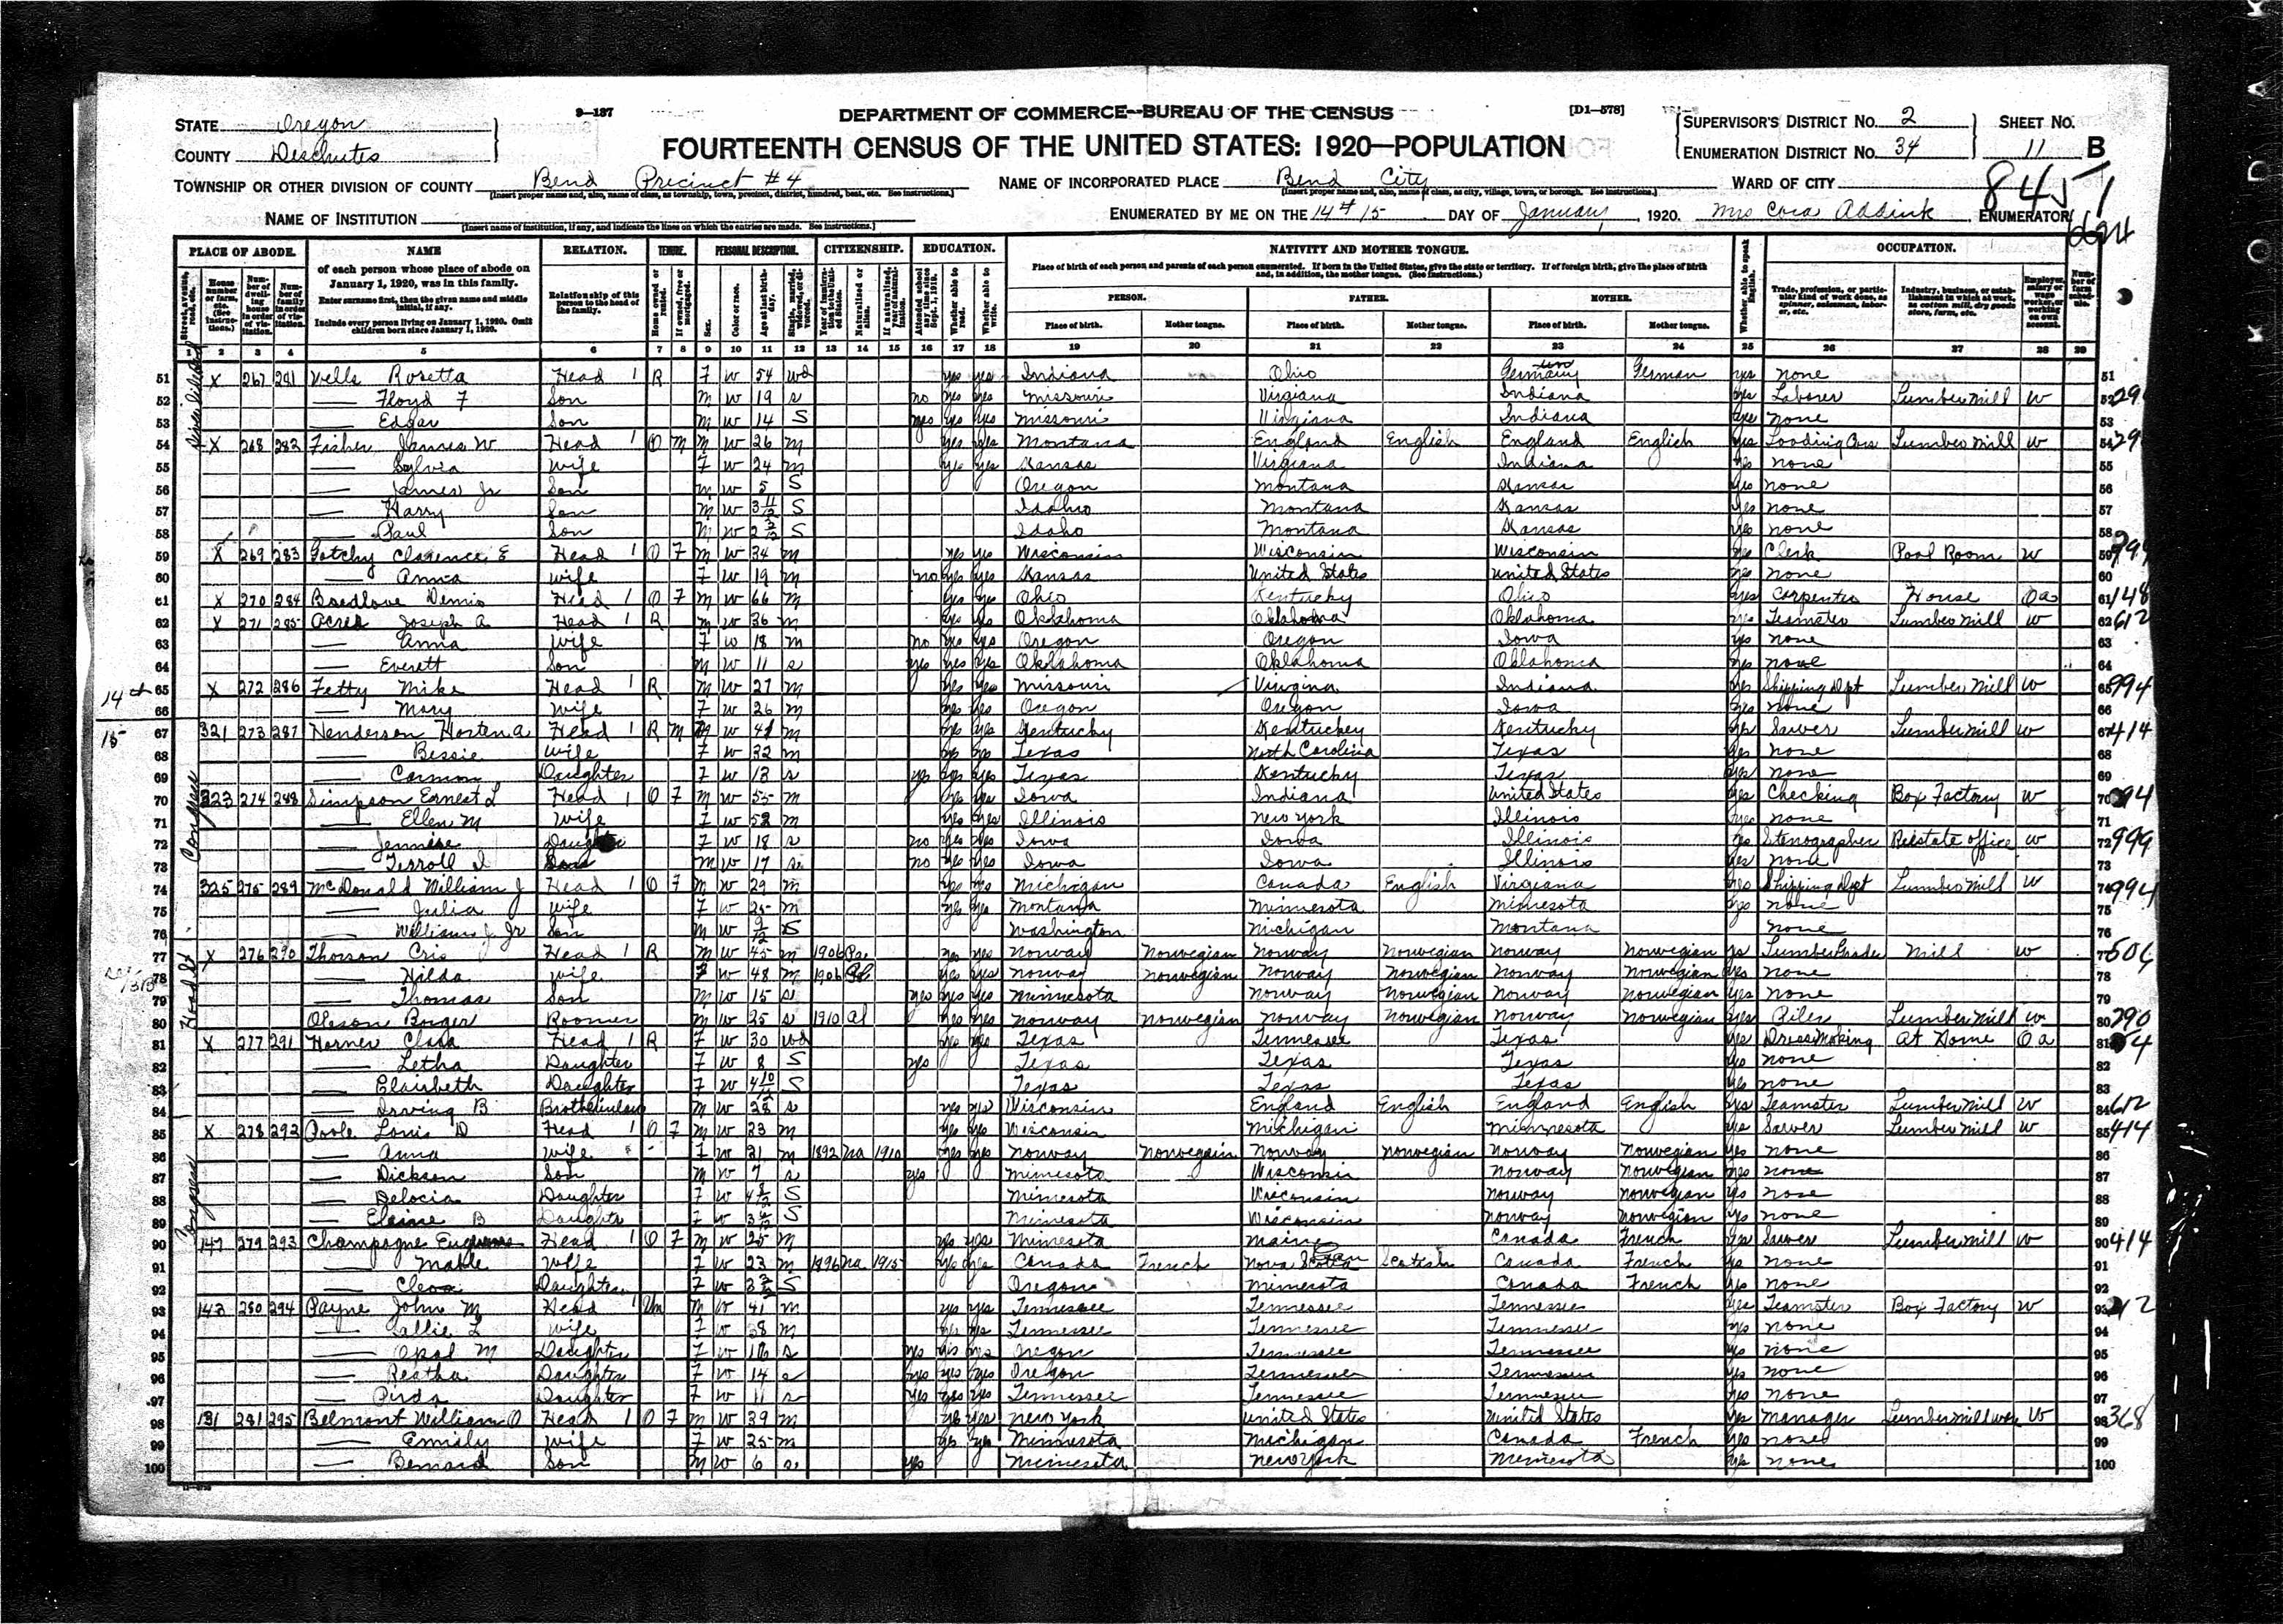 9—137 DEPARTMENT OF COMMERCE—BUREAU OF THE CENSUS [D1—578]
STATE Oregon
COUNTY Deschutes
FOURTEENTH CENSUS OF THE UNITED STATES: 1920—POPULATION
SUPERVISOR'S DISTRICT No. 2 SHEET No.
ENUMERATION DISTRICT No. 34 11 B
TOWNSHIP OR OTHER DIVISION OF COUNTY Bend Precinct #4 NAME OF INCORPORATED PLACE Bend City WARD OF CITY
8451
NAME OF INSTITUTION ENUMERATED BY ME ON THE 14+15 DAY OF January, 1920. Mrs Cora Addink ENUMERATOR
[Insert name of institution, if any, and indicate the lines on which the entries are made. See instructions.]
PLACE OF ABODE. NAME RELATION. TENURE. PERSONAL DESCRIPTION. CITIZENSHIP. EDUCATION. NATIVITY AND MOTHER TONGUE. OCCUPATION.
of each person whose place of abode on January 1, 1920, was in this family.
Enter surname first, then the given name and middle initial, if any.
Include every person living on January 1, 1920. Omit children born since January 1, 1920.
Relationship of this person to the head of the family.
Place of birth of each person and parents of each person enumerated. If born in the United States, give the state or territory. If of foreign birth, give the place of birth and, in addition, the mother tongue. (See instructions.)
PERSON. FATHER. MOTHER.
Place of birth. Mother tongue. Place of birth. Mother tongue. Place of birth. Mother tongue.
1 2 3 4 5 6 7 8 9 10 11 12 13 14 15 16 17 18 19 20 21 22 23 24 25 26 27 28 29
51 X 267 281 Wells Rosetta Head 1 R F W 54 Wd yes yes Indiana Ohio Germany German yes none 51
52 Floyd F Son M W 19 S no yes yes Missouri Virgiana Indiana yes Laborer Lumber Mill W 52
53 Edgar Son M W 14 S yes yes yes Missouri Virgiana Indiana yes none 53
54 X 268 282 Fisher James W Head 1 O M M W 26 M yes yes Montana England English England English yes Loading Cars Lumber Mill W 54
55 Sylvia Wife F W 24 M yes yes Kansas Virgiana Indiana yes none 55
56 James Jr Son M W 5 S Oregon Montana Kansas yes none 56
57 Harry Son M W 3 11/12 S Idaho Montana Kansas yes none 57
58 Paul Son M W 2 2/12 S Idaho Montana Kansas yes none 58
59 X 269 283 Gotchy Clarence E Head 1 O F M W 34 M yes yes Wisconsin Wisconsin Wisconsin yes Clerk Pool Room W 59
60 Anna Wife F W 19 M no yes yes Kansas United States United States yes none 60
61 X 270 284 Bredlove Denis Head 1 O F M W 66 M yes yes Ohio Kentucky Ohio yes Carpenter House Oa 61
62 X 271 285 Acred Joseph A Head 1 R M W 36 M yes yes Oklahoma Oklahoma Oklahoma yes Teamster Lumber Mill W 62
63 Anna Wife F W 18 M no yes yes Oregon Oregon Iowa yes none 63
64 Everett Son M W 11 S yes yes yes Oklahoma Oklahoma Oklahoma yes none 64
65 X 272 286 Fetty Mike Head 1 R M W 27 M yes yes Missouri Virgina Indiana yes Shipping Dpt Lumber Mill W 65
66 Mary Wife F W 26 M yes yes Oregon Oregon Iowa yes none 66
67 321 273 287 Henderson Horten A Head 1 R M M W 41 M yes yes Kentucky Kentuckey Kentucky yes Sawer Lumber Mill W 67
68 Bessie Wife F W 32 M yes yes Texas North Carolina Texas yes none 68
69 Carmon Daughter F W 13 S yes yes yes Texas Kentucky Texas yes none 69
70 323 274 288 Simpson Ernest L Head 1 O F M W 55 M yes yes Iowa Indiana United States yes Checking Box Factory W 70
71 Ellen M Wife F W 52 M yes yes Illinois New York Illinois yes none 71
72 Jennise Daughter F W 18 S no yes yes Iowa Iowa Illinois yes Stenographer Relstate office W 72
73 Terroll I Son M W 17 S no yes yes Iowa Iowa Illinois yes none 73
74 325 275 289 McDonald William J Head 1 O F M W 29 M yes yes Michigan Canada English Virgiana yes Shipping Dpt Lumber Mill W 74
75 Julia Wife F W 25 M yes yes Montana Minnesota Minnesota yes none 75
76 William J Jr Son M W 9/12 S Washington Michigan Montana none 76
77 X 276 290 Thorson Cris Head 1 R M W 45 M 1906 Pa yes yes Norway Norwegian Norway Norwegian Norway Norwegian yes Lumber Grader Mill W 77
78 Hilda Wife F W 48 M 1906 yes yes Norway Norwegian Norway Norwegian Norway Norwegian yes none 78
79 Thomas Son M W 15 S yes yes yes Minnesota Norway Norwegian Norway Norwegian yes none 79
80 Oleson Borger Roomer M W 25 S 1910 al yes yes Norway Norwegian Norway Norwegian Norway Norwegian yes Piler Lumber Mill W 80
81 X 277 291 Horner Clara Head 1 R F W 30 Wd yes yes Texas Tennessee Texas yes DressMaking At Home Oa 81
82 Letha Daughter F W 8 S yes Texas Texas Texas yes none 82
83 Elaisbeth Daughter F W 4 10/12 S Texas Texas Texas yes none 83
84 Irving B Brotherinlaw M W 28 S yes yes Wisconsin England English England English yes Teamster Lumber Mill W 84
85 X 278 292 Poole Louis D Head 1 O F M W 23 M yes yes Wisconsin Michigan Minnesota yes Sawer Lumber Mill W 85
86 Anna Wife F W 31 M 1892 na 1910 yes yes Norway Norwegain Norway Norwegian Norway Norwegian yes none 86
87 Dickson Son M W 7 S yes Minnesota Wisconsin Norway Norwegian yes none 87
88 Delocia Daughter F W S Minnesota Wisconsin Norway Norwegian yes none 88
89 Elaine B Daughter F W S Minnesota Wisconsin Norway Norwegian yes none 89
90 147 279 293 Champagne Head 1 O F M W 25 M yes yes Minnesota Main Canada French yes Sawer Lumber Mill W 90
91 Mable Wife F W 23 M 1896 na 1915 yes yes Canada French Nova Scotia Scotish Canada French yes none 91
92 Cleoa Daughter F W S Oregon Minnesota Canada French yes none 92
93 143 280 294 Payne John M Head 1 M W 41 M yes yes Tennessee Tennessee Tennessee yes Teamster Box Factory W 93
94 Callie L Wife F W 38 M yes yes Tennessee Tennessee Tennessee yes none 94
95 Opal M Daughter F W 16 S yes yes yes Oregon Tennessee Tennessee yes none 95
96 Reatha Daughter F W 14 S yes yes yes Oregon Tennessee Tennessee yes none 96
97 Daughter F W 11 S yes yes yes Tennessee Tennessee Tennessee yes none 97
98 131 281 295 Belmont William O Head 1 O F M W 39 M yes yes New York United States United States yes Manager W 98
99 Emily Wife F W 25 M yes yes Minnesota Michigan Canada French yes none 99
100 Bernard Son M W 6 S yes Minnesota New York Minnesota yes none 100
KODAK